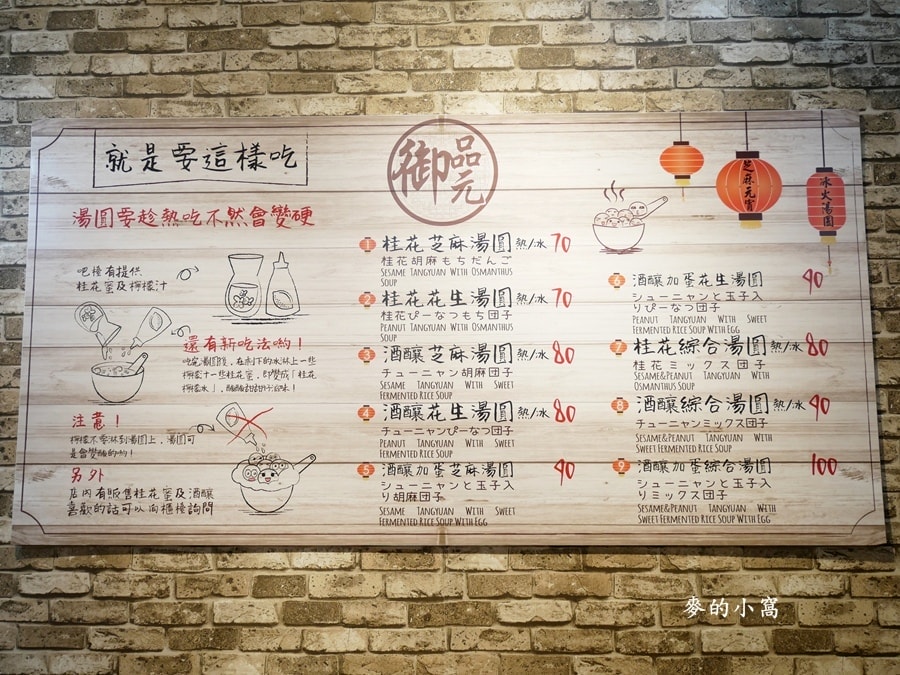 就是要這樣吃
湯圓要趁熱吃不然會變硬
吧檯有提供
桂花蜜及檸檬汁
還有新吃法喲！
吃完湯圓後，在剩下的冰淋上一些
檸檬汁一些桂花蜜，即變成「桂花
檸檬冰」，酸酸甜甜好滋味！
注意！
檸檬不要淋到湯圓上，湯圓可
是會變酸的喲！
另外
店內有販售桂花蜜及酒釀
喜歡的話可以向櫃檯詢問
御品元
1 桂花芝麻湯圓 熱/冰 70
桂花胡麻もちだんご
Sesame Tangyuan With Osmanthus
Soup
2 桂花花生湯圓 熱/冰 70
桂花ぴーなつもち団子
Peanut Tangyuan With Osmanthus
Soup
3 酒釀芝麻湯圓 熱/冰 80
チューニャン胡麻団子
Sesame Tangyuan With Sweet
Fermented Rice Soup
4 酒釀花生湯圓 熱/冰 80
チューニャンぴーなつ団子
Peanut Tangyuan With Sweet
Fermented Rice Soup
5 酒釀加蛋芝麻湯圓 90
シューニャンと玉子入
り胡麻団子
Sesame Tangyuan With Sweet
Fermented Rice Soup With Egg
芝麻元宵
冰火湯圓
6 酒釀加蛋花生湯圓 90
シューニャンと玉子入
りぴーなつ団子
Peanut Tangyuan With Sweet
Fermented Rice Soup With Egg
7 桂花綜合湯圓 熱/冰 80
桂花ミックス団子
Sesame&Peanut Tangyuan With
Osmanthus Soup
8 酒釀綜合湯圓 熱/冰 90
チューニャンミックス団子
Sesame&Peanut Tangyuan With
Sweet Fermented Rice Soup
9 酒釀加蛋綜合湯圓 100
シューニャンと玉子入
りミックス団子
Sesame&Peanut Tangyuan With
Sweet Fermented Rice Soup With Egg
麥的小窩